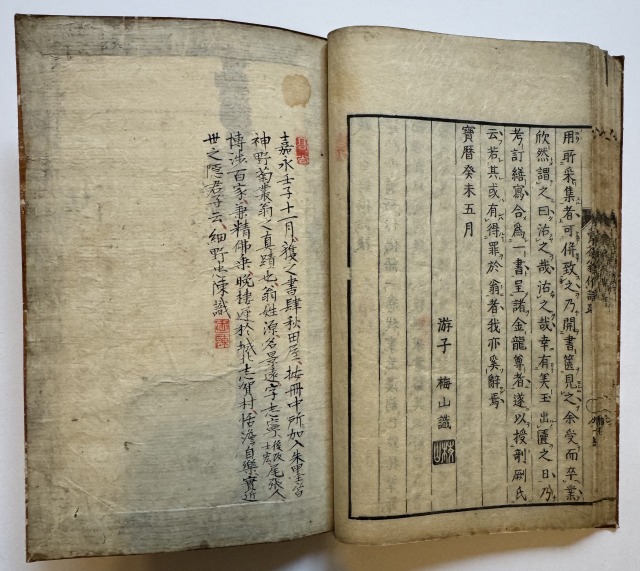 用所采集者可併致之乃開書篋見之余受而卒業
欣然謂之曰沽之哉沽之哉幸有美玉出匵之日乃
考訂繕寫合爲一書呈諸金龍尊者遂以授剞劂氏
云若其或有得罪於翁者我亦奚辭焉
寶曆癸未五月
游子 梅山識
嘉永壬子十一月獲之書肆秋田屋按冊中所加入朱墨皆
神野菊叢翁之真蹟也翁姓源名景遠字志寧後改士宏尾張人
博涉百家兼精佛乘晚棲遲於城北志賀村恬澹自樂實近
世之隱君子云細野忠陳識